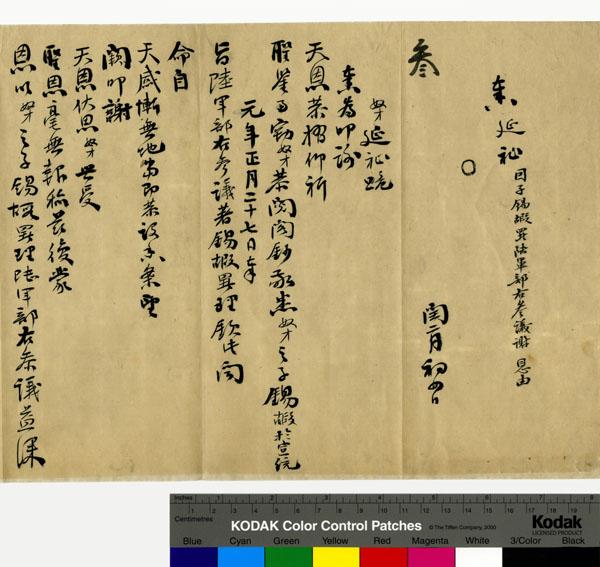 奏 延祉 因子錫嘏署陸軍部右參議謝 恩由
閏二月初四日
叁
奴才延祉跪
奏為叩謝
天恩恭摺仰祈
聖鑒事竊奴才恭閱閣鈔敬悉奴才之子錫嘏於宣統
元年正月二十七日奉
旨陸軍部右參議著錫嘏署理欽此聞
命自
天感慚無地當即恭設香案望
闕叩謝
天恩伏思奴才世受
聖恩毫無報稱茲復蒙
恩以奴才之子錫嘏署理陸軍部右參議益深
Inches 1 2 3 4 5 6 7 8
Centimetres 1 2 3 4 5 6 7 8 9 10 11 12 13 14 15 16 17 18 19
KODAK Color Control Patches © The Tiffen Company, 2000 Kodak
LICENSED PRODUCT
Blue Cyan Green Yellow Red Magenta White 3/Color Black